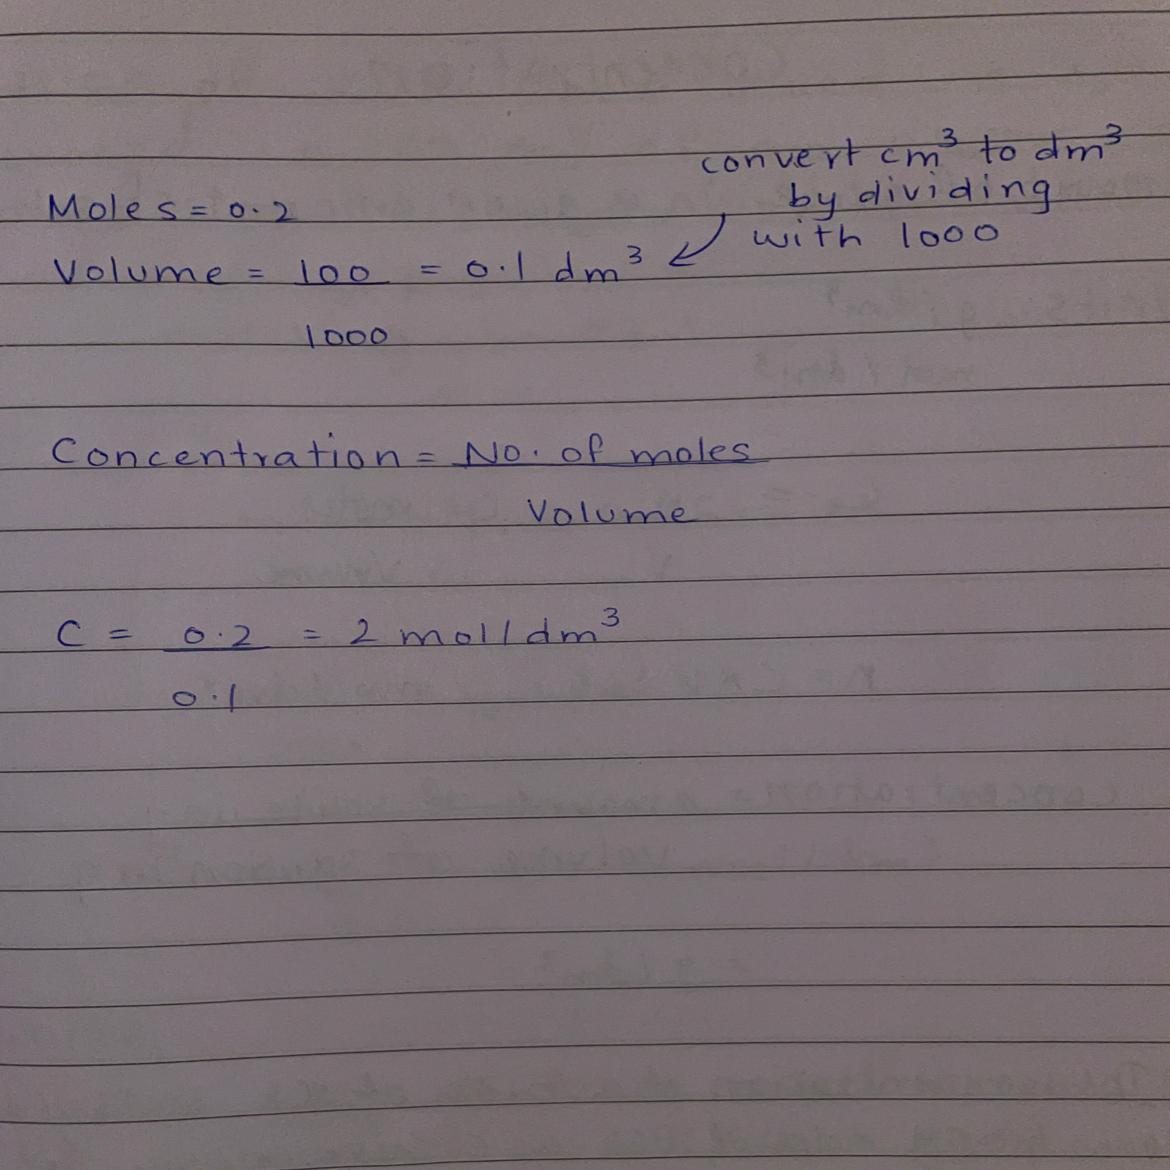 convert cm³ to dm³
by dividing
with 1000
Moles = 0.2
Volume = 100/1000 = 0.1 dm³
Concentration = No. of moles/Volume
C = 0.2/0.1 = 2 mol/dm³